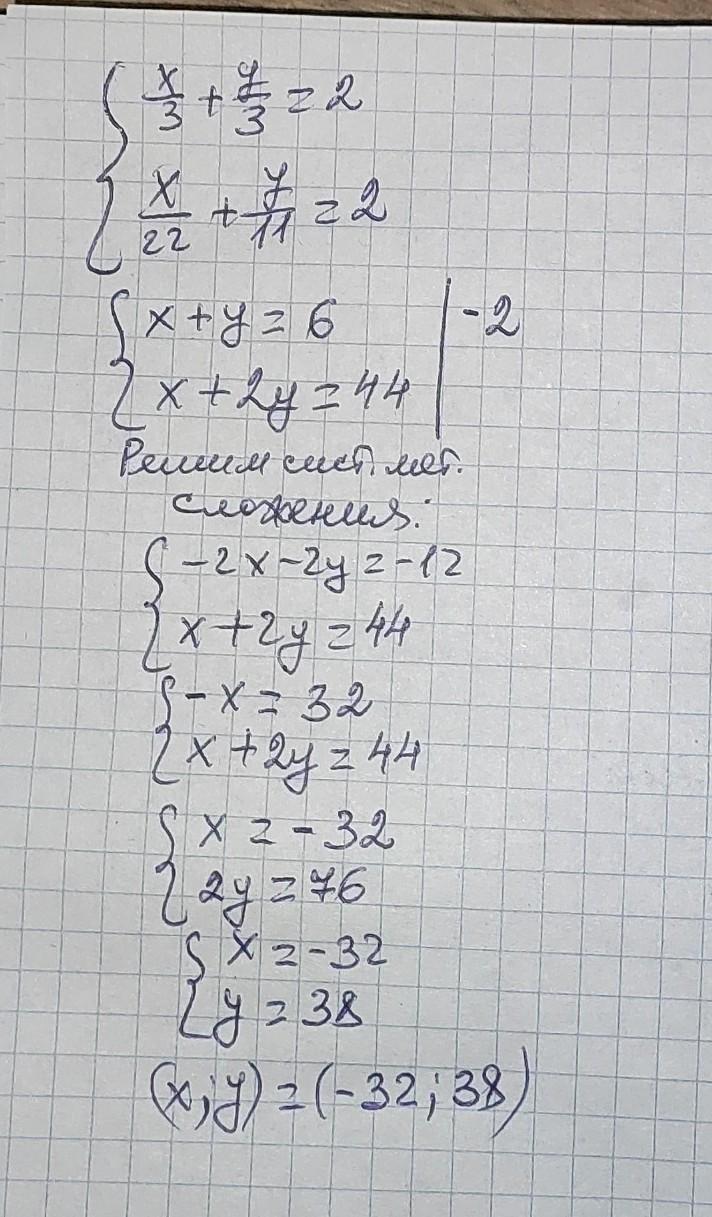 x/3 + y/3 = 2
x/22 + y/11 = 2
x + y = 6 | -2
x + 2y = 44
Решим сист. мет.
сложения:
-2x - 2y = -12
x + 2y = 44
-x = 32
x + 2y = 44
x = -32
2y = 76
x = -32
y = 38
(x; y) = (-32; 38)